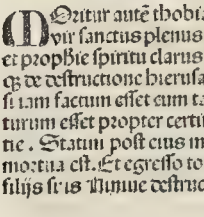 Moritur autē thobi
vir sanctus plenus
et prophīe spiritu clarus
qz de destructione hierusa
si iam factum esset cum t
turum esset propter certi
tie. Statim post eius m
mortua est. Et egresso to
filijs suis Niniue destruc